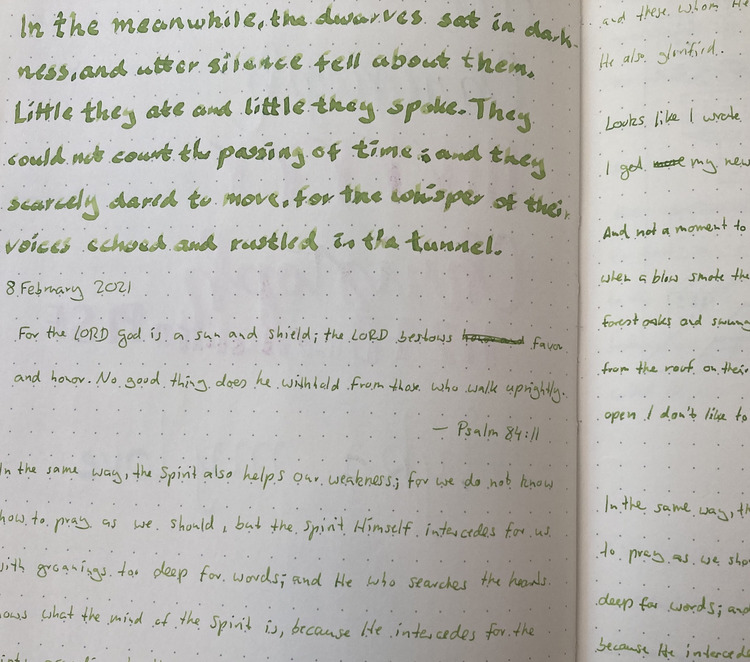 In the meanwhile, the dwarves sat in dark-
ness, and utter silence fell about them.
Little they ate and little they spoke. They
could not count the passing of time; and they
scarcely dared to move, for the whisper of their
voices echoed and rustled in the tunnel.
8 February 2021
For the LORD God is a sun and shield; the LORD bestows favor
and honor. No good thing does he withhold from those who walk uprightly.
— Psalm 84:11
In the same way, the Spirit also helps our weakness; for we do not know
how to pray as we should, but the Spirit Himself intercedes for us
with groanings too deep for words; and He who searches the hearts
nows what the mind of the Spirit is, because He intercedes for the
and these whom He
He also glorified.
Looks like I wrote
I get my new
And not a moment to
when a blow smote the
forest oaks and swung
from the roof on their
open I don't like to
In the same way, th
to pray as we shou
deep for words; and
because He interced